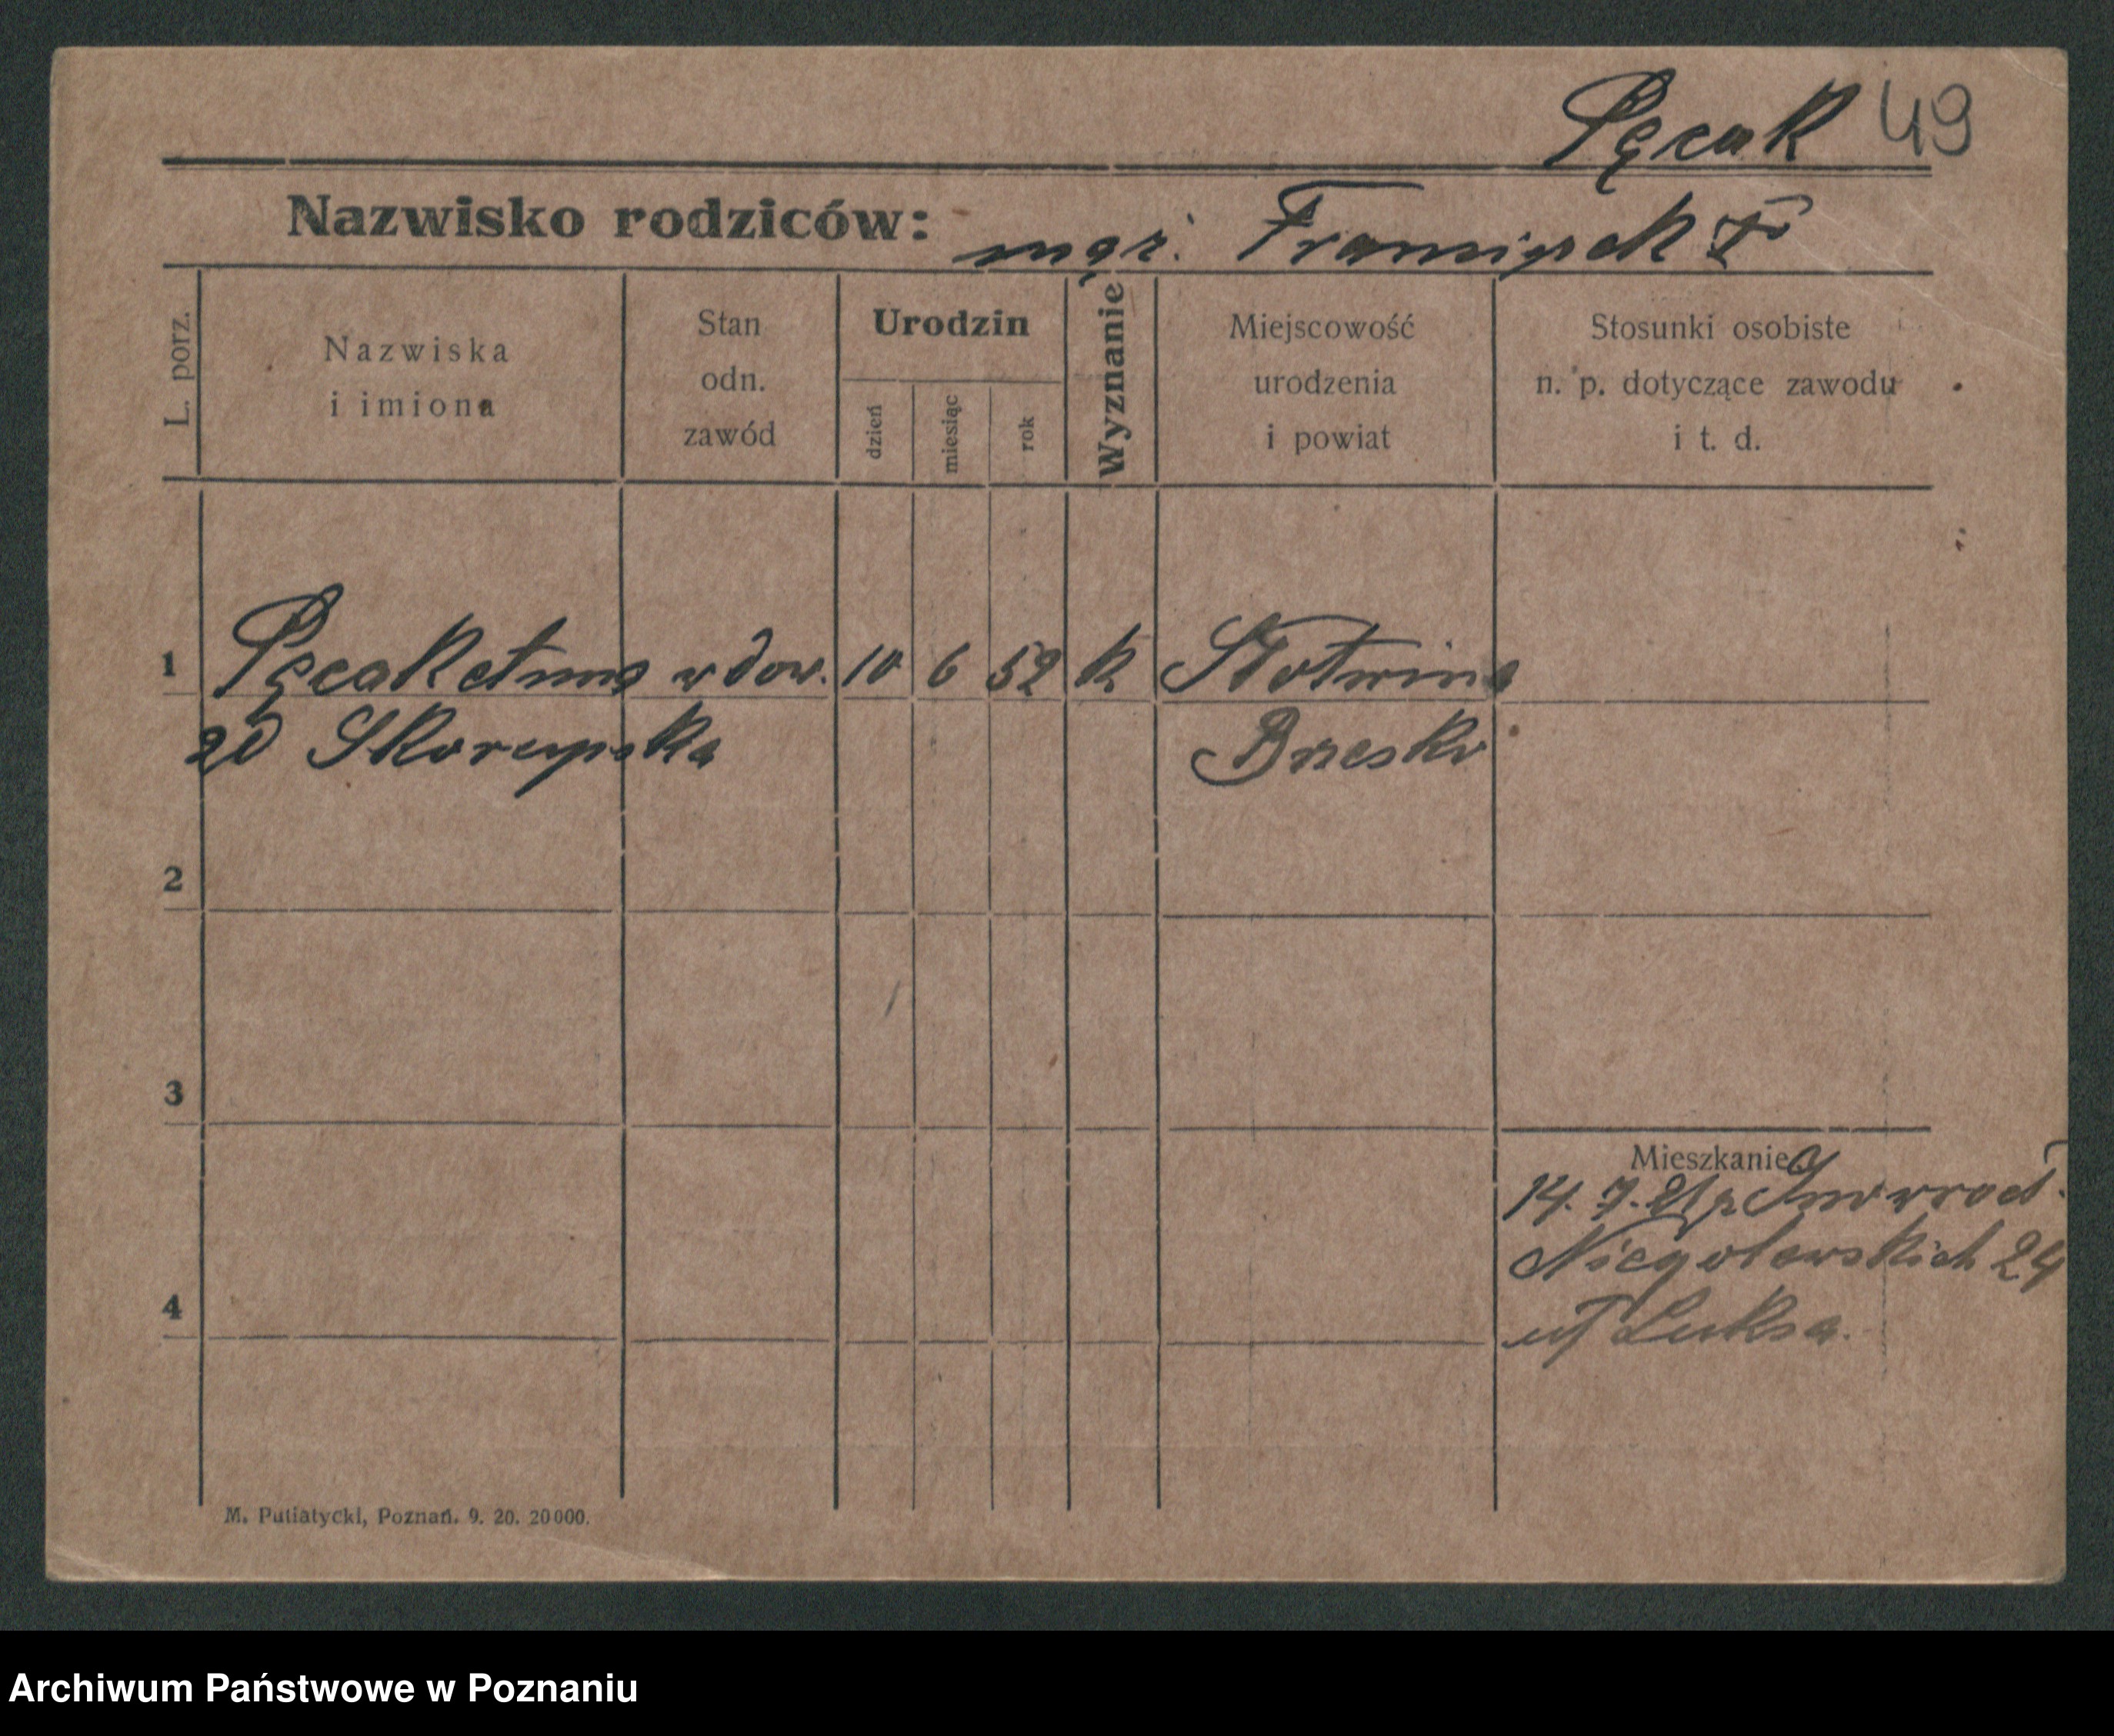 Pęcak 49
Nazwisko rodziców: męż. Franciszek
L. porz.
Nazwiska
i imiona
Stan
odn.
zawód
Urodzin
dzień
miesiąc
rok
Wyznanie
Miejscowość
urodzenia
i powiat
Stosunki osobiste
n. p. dotyczące zawodu
i t. d.
1 Pęcak Anna wdow. 10 6 52 k Słotwina
zd Skorupska Brzesko
2
3
4
Mieszkanie
14. 7. 21 z Inowrocł.
Niegolewskich 24
u Luksa.
M. Putiatycki, Poznań. 9. 20. 20000.
Archiwum Państwowe w Poznaniu